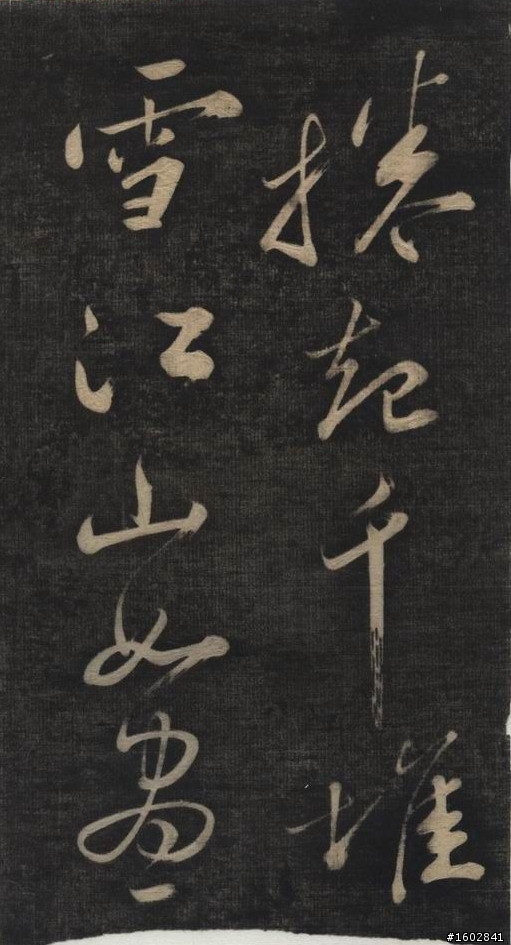 捲起千堆
雪江山如畫
#1602841